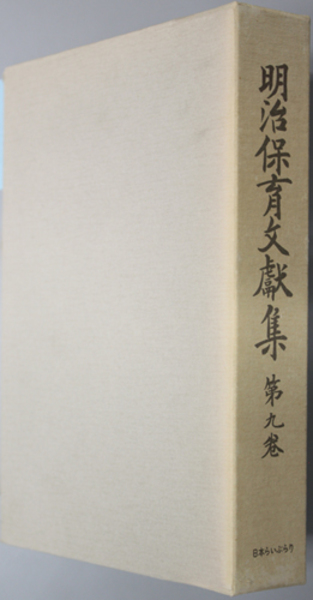 明治保育文獻集
第九卷
日本らいぶらり